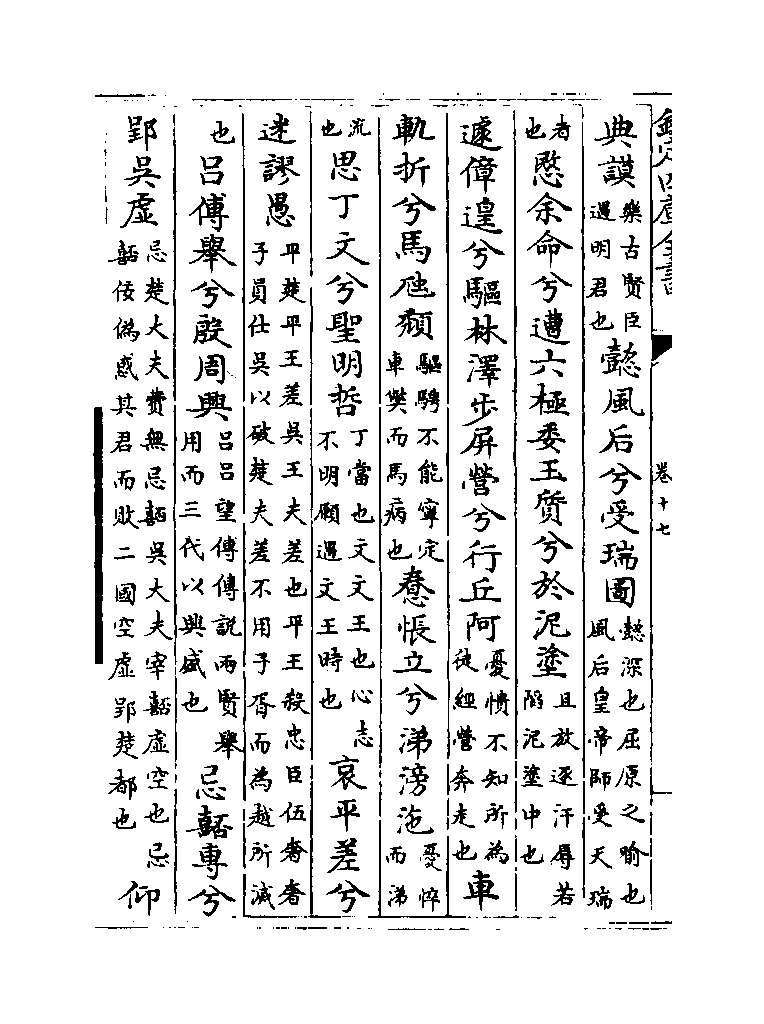 欽定四庫全書 卷十七
典謨樂古賢臣遇明君也懿風后兮受瑞圖懿深也屈原之喻也風后皇帝師受天瑞
者也愍余命兮遭六極委玉質兮於泥塗且放逐汗辱若陷泥塗中也
遽傽遑兮驅林澤步屏營兮行丘阿憂憒不知所為徒經營奔走也車
軌折兮馬虺頹驅騁不能寧定車獘而馬病也惷悵立兮涕滂沱憂悴而涕
流也思丁文兮聖明哲丁當也文文王也心志不明願遇文王時也哀平差兮
迷謬愚平楚平王差吳王夫差也平王殺忠臣伍奢奢子員仕吳以破楚夫差不用子胥而為越所滅
也呂傅舉兮殷周興呂呂望傅傅說兩賢舉用而三代以興盛也忌嚭專兮
郢吳虛忌楚大夫費無忌嚭吳大夫宰嚭虛空也忌嚭佞偽惑其君而敗二國空虛郢楚都也仰